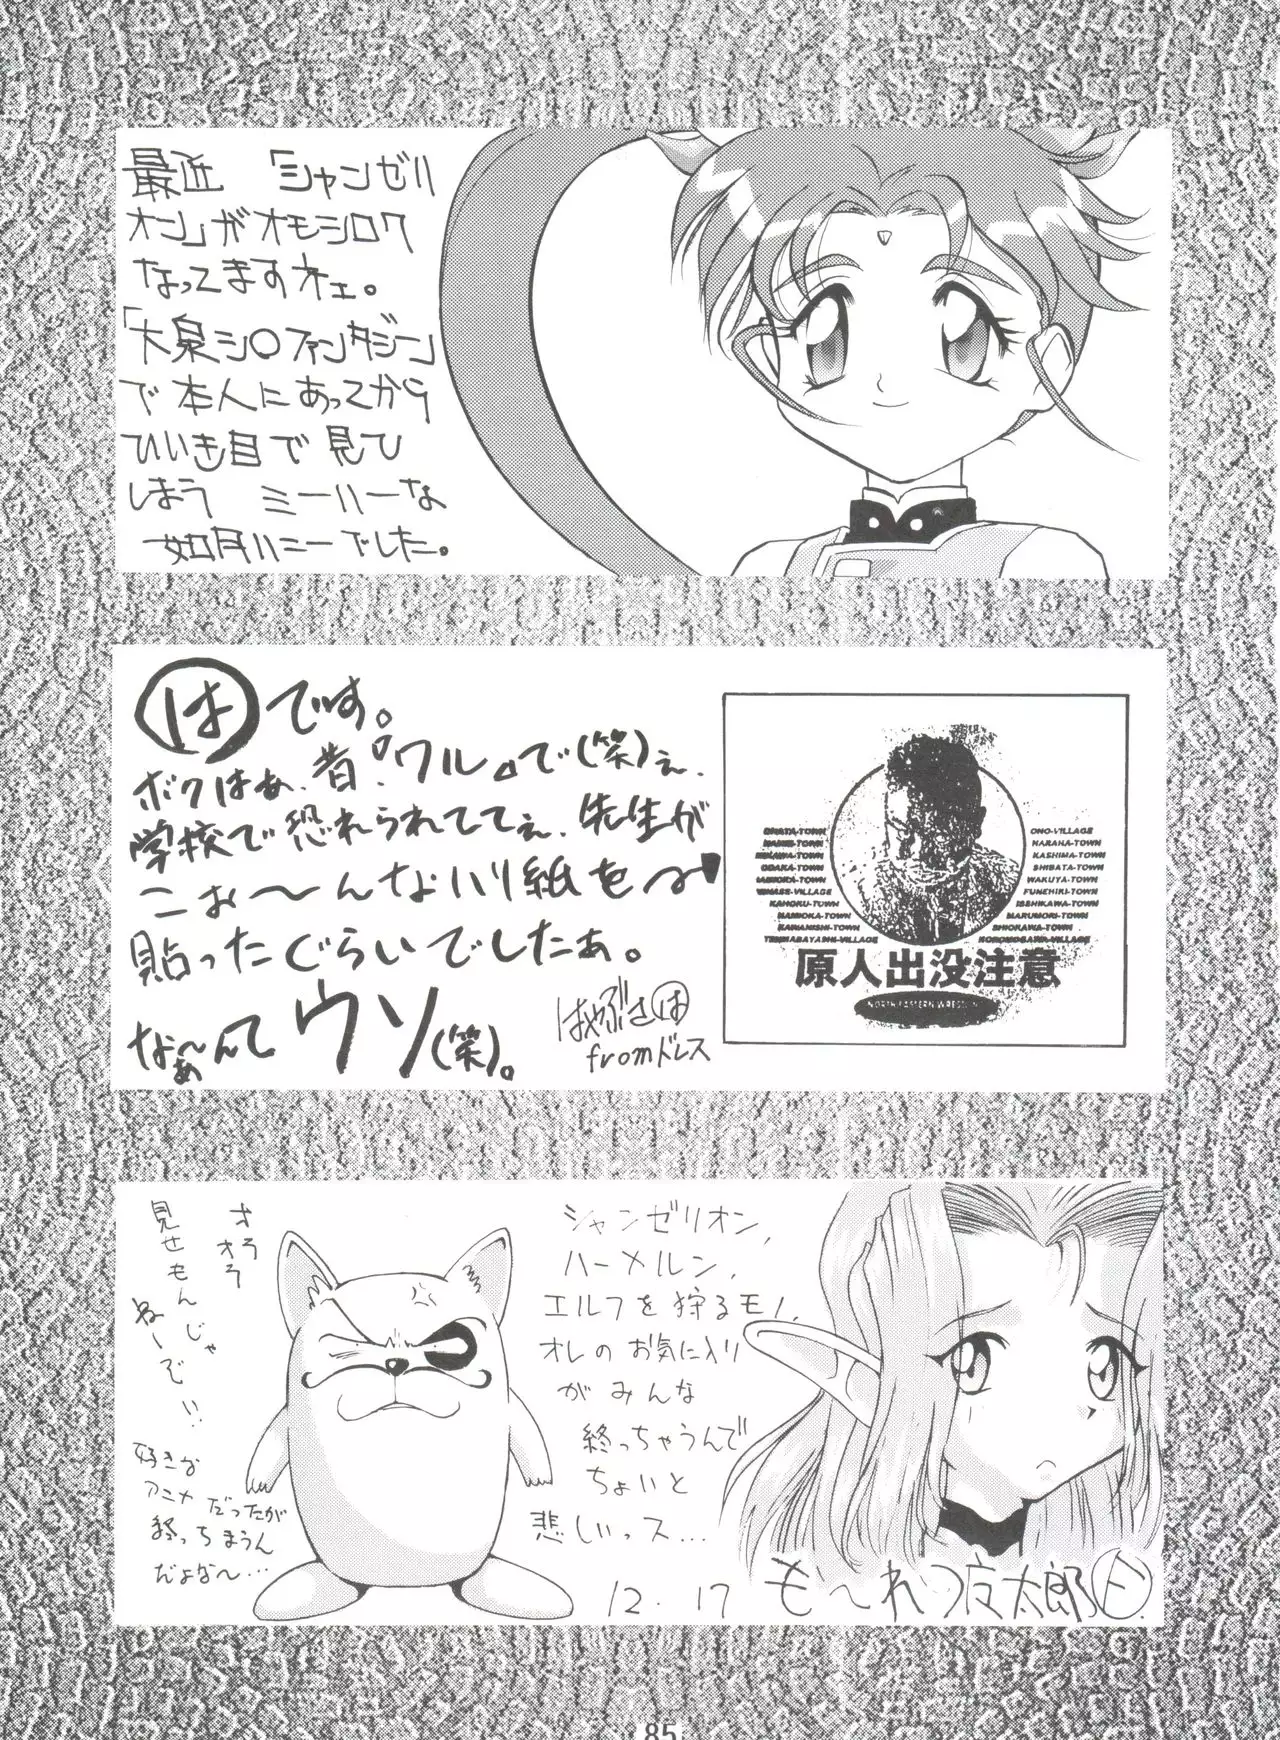 最近 「シャンゼリ
オン」がオモシロク
なってますネェ。
「大泉シ○ファンタジー」
で本人にあってから
ひいき目で見ひ
しまう ミーハーな
如月ハニーでした。
はです。
ボクはぁ、昔『ワル』で(笑)ぇ、
学校で恐れられててぇ、先生が
こぉ〜んなハリ紙を
貼ったぐらいでしたぁ。
なぁ〜んてウソ(笑)。
はやぶさは
fromドレス
OHATA-TOWN
NAMIE-TOWN
ODAKA-TOWN
KAHOKU-TOWN
NAMIOKA-TOWN
KAWANISHI-TOWN
TENNABAYASHI-VILLAGE
ONO-VILLAGE
NARAHA-TOWN
KASHIMA-TOWN
SHIBATA-TOWN
WAKUYA-TOWN
FUNEHIKI-TOWN
ISHIKAWA-TOWN
MARUMORI-TOWN
SHIOKAWA-TOWN
原人出没注意
NORTH EASTERN WRESTLIN
オラオラ
見せもんじゃ
ねーでい!!
好きな
アニメだったが
終っちまうん
だよな〜…
シャンゼリオン,
ハーメルン,
エルフを狩るモノ,
オレのお気に入り
がみんな
終っちゃうんで
ちょいと
悲しいっス…
12.17
も〜れつ夜太郎
85